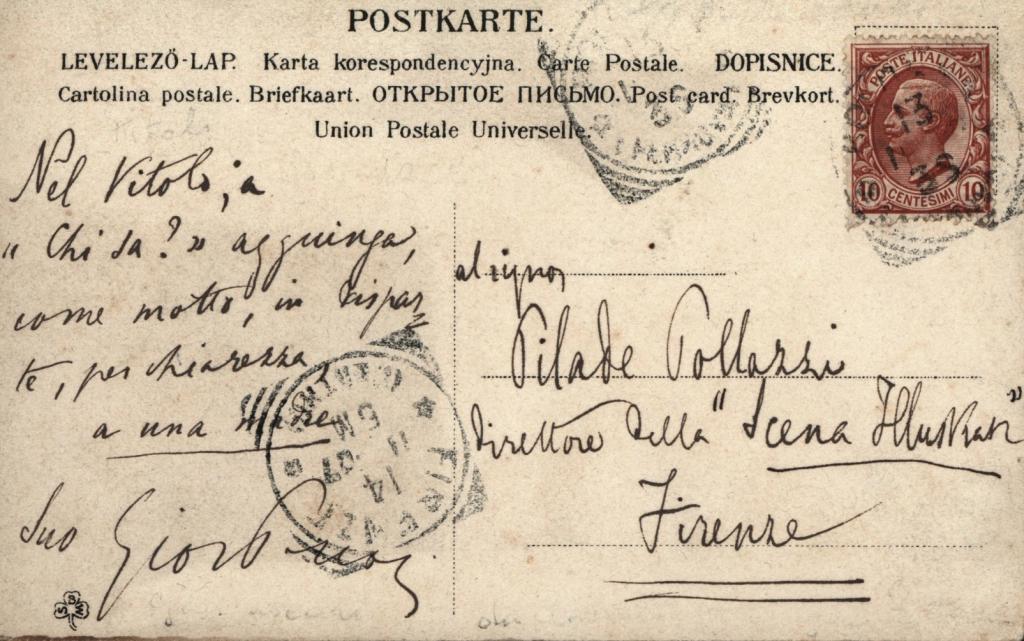 POSTKARTE.
LEVELEZŐ-LAP. Karta korespondencyjna. Carte Postale. DOPISNICE.
Cartolina postale. Briefkaart. ОТКРЫТОЕ ПИСЬМО. Post card. Brevkort.
Union Postale Universelle.
POSTE ITALIANE
10 CENTESIMI 10
Nel Vitolo, a
" Chi sa? " aggiunga,
come motto, in dispar
te, per chiarezza
a una madre
Suo
FIRENZE
14
11 07
5 M
al signor
Pilade Pollazzi
direttore della "Scena Illustrata"
Firenze